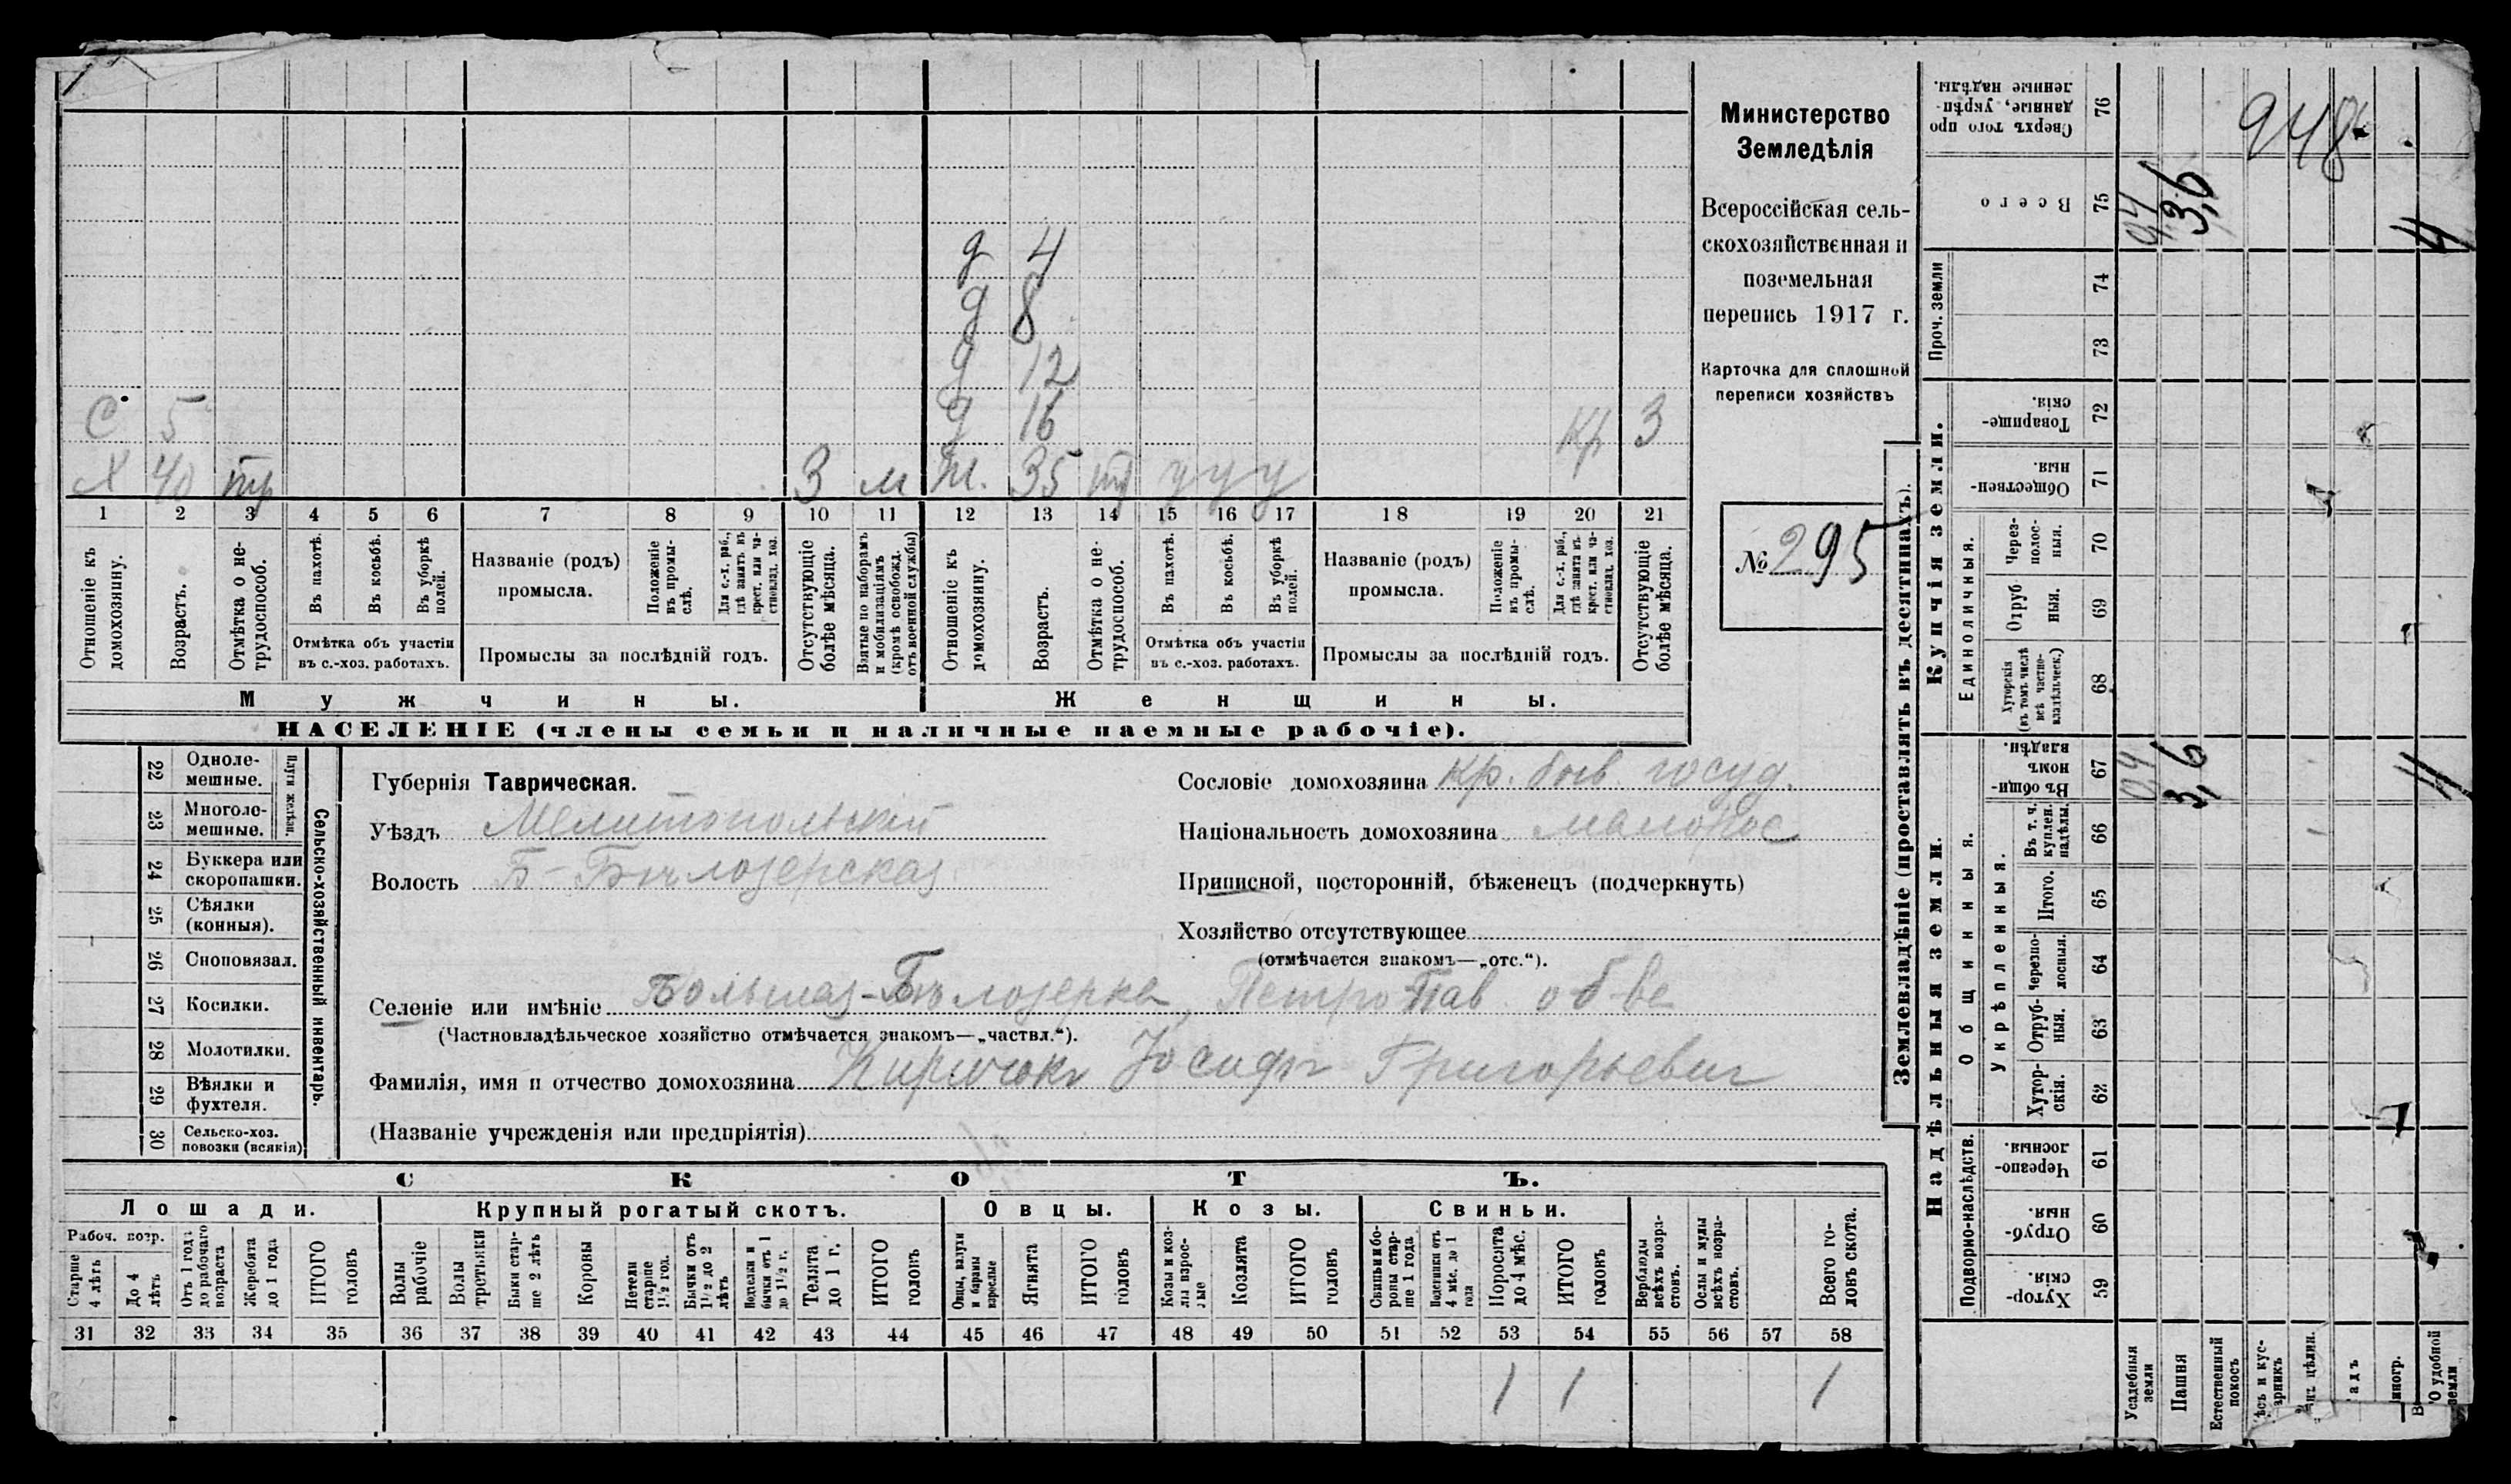 д 4
д 8
д 12
С 5 д 16 кр 3
Х 40 тр 3 м ж. 35 тр у у у
1 2 3 4 5 6 7 8 9 10 11 12 13 14 15 16 17 18 19 20 21
Отношеніе къ домохозяину.
Возрастъ.
Отмѣтка о нетрудоспособ.
Въ пахотѣ.
Въ косьбѣ.
Въ уборкѣ полей.
Отмѣтка объ участіи въ с.-хоз. работахъ.
Названіе (родъ) промысла.
Положеніе въ промыслѣ.
Для с.-х. раб., гдѣ занятъ въ крест. или частновлад. хоз.
Промыслы за послѣдній годъ.
Отсутствующіе болѣе мѣсяца.
Взятые по наборамъ и мобилизаціямъ (кромѣ освобожд. отъ военной службы)
Отношеніе къ домохозяину.
Возрастъ.
Отмѣтка о нетрудоспособ.
Въ пахотѣ.
Въ косьбѣ.
Въ уборкѣ полей.
Отмѣтка объ участіи въ с.-хоз. работахъ.
Названіе (родъ) промысла.
Положеніе въ промыслѣ.
Для с.-х. раб., гдѣ занята въ крест. или частновлад. хоз.
Промыслы за послѣдній годъ.
Отсутствующіе болѣе мѣсяца.
Мужчины. Женщины.
НАСЕЛЕНІЕ (члены семьи и наличные наемные рабочіе).
Министерство
Земледѣлія
Всероссійская сель-
скохозяйственная и
поземельная
перепись 1917 г.
Карточка для сплошной
переписи хозяйствъ
№ 295
22 Одноле-
мешные.
23 Многоле-
мешные.
Плуги желѣзн.
24 Буккера или
скоропашки.
25 Сѣялки
(конныя).
26 Сноповязал.
27 Косилки.
28 Молотилки.
29 Вѣялки и
фухтеля.
30 Сельско-хоз.
повозки (всякія)
Сельско-хозяйственный инвентарь.
Губернія Таврическая.
Уѣздъ Мелитопольскій
Волость Б-Бѣлозерская
Сословіе домохозяина кр. быв. госуд.
Національность домохозяина малорос
Приписной, посторонній, бѣженецъ (подчеркнуть)
Хозяйство отсутствующее
(отмѣчается знакомъ—„отс.“).
Селеніе или имѣніе Большая-Бѣлозерка, Петро-Пав. об-ве
(Частновладѣльческое хозяйство отмѣчается знакомъ—„частвл.“).
Фамилія, имя и отчество домохозяина Кирючокъ Іосифъ Григорьевич
(Названіе учрежденія или предпріятія)
СКОТЪ.
Лошади. Крупный рогатый скотъ. Овцы. Козы. Свиньи.
Рабоч. возр.
Старше 4 лѣтъ
До 4 лѣтъ
Отъ 1 года до рабочаго возраста
Жеребята до 1 года
ИТОГО головъ
Волы рабочіе
Волы третьяки
Быки старше 2 лѣтъ
Коровы
Нетели старше 1½ год.
Бычки отъ 1½ до 2 лѣтъ
Подтелки и бычки отъ 1 до 1½ г.
Телята до 1 г.
ИТОГО головъ
Овцы, валухи и бараны взрослые
Ягнята
ИТОГО головъ
Козы и козлы взрослые
Козлята
ИТОГО головъ
Свиньи и боровы старше 1 года
Подсвинки отъ 4 мѣс. до 1 года
Поросята до 4 мѣс.
ИТОГО головъ
Верблюды всѣхъ возрастовъ.
Ослы и мулы всѣхъ возрастовъ.
Всего головъ скота.
31 32 33 34 35 36 37 38 39 40 41 42 43 44 45 46 47 48 49 50 51 52 53 54 55 56 57 58
1 1 1
Землевладѣніе (проставлять въ десятинахъ).
Надѣльныя земли. Купчія земли. Проч. земли
Подворно-наслѣдств.
Общинныя.
Укрѣпленныя.
Единоличныя.
Хутор-
скія. 59
Отруб-
ныя. 60
Черезпо-
лосныя. 61
Хутор-
скія. 62
Отруб-
ныя. 63
Черезпо-
лосныя. 64
Итого. 65
Въ т. ч. куплен. надѣлы. 66
Въ общин-
номъ владѣн. 67
Хуторскія (въ томъ числѣ всѣ частно-
владѣльческ.) 68
Отруб-
ныя. 69
Через-
полос-
ныя. 70
Обществен-
ныя. 71
Товарище-
скія. 72
73
74
Всего 75
Сверхъ того про-
данные, укрѣп-
ленные надѣлы. 76
Усадебныя земли 0,4 0,4
Пашня 3,6 3,6
Естественный покосъ
удобной земли 4 4
948